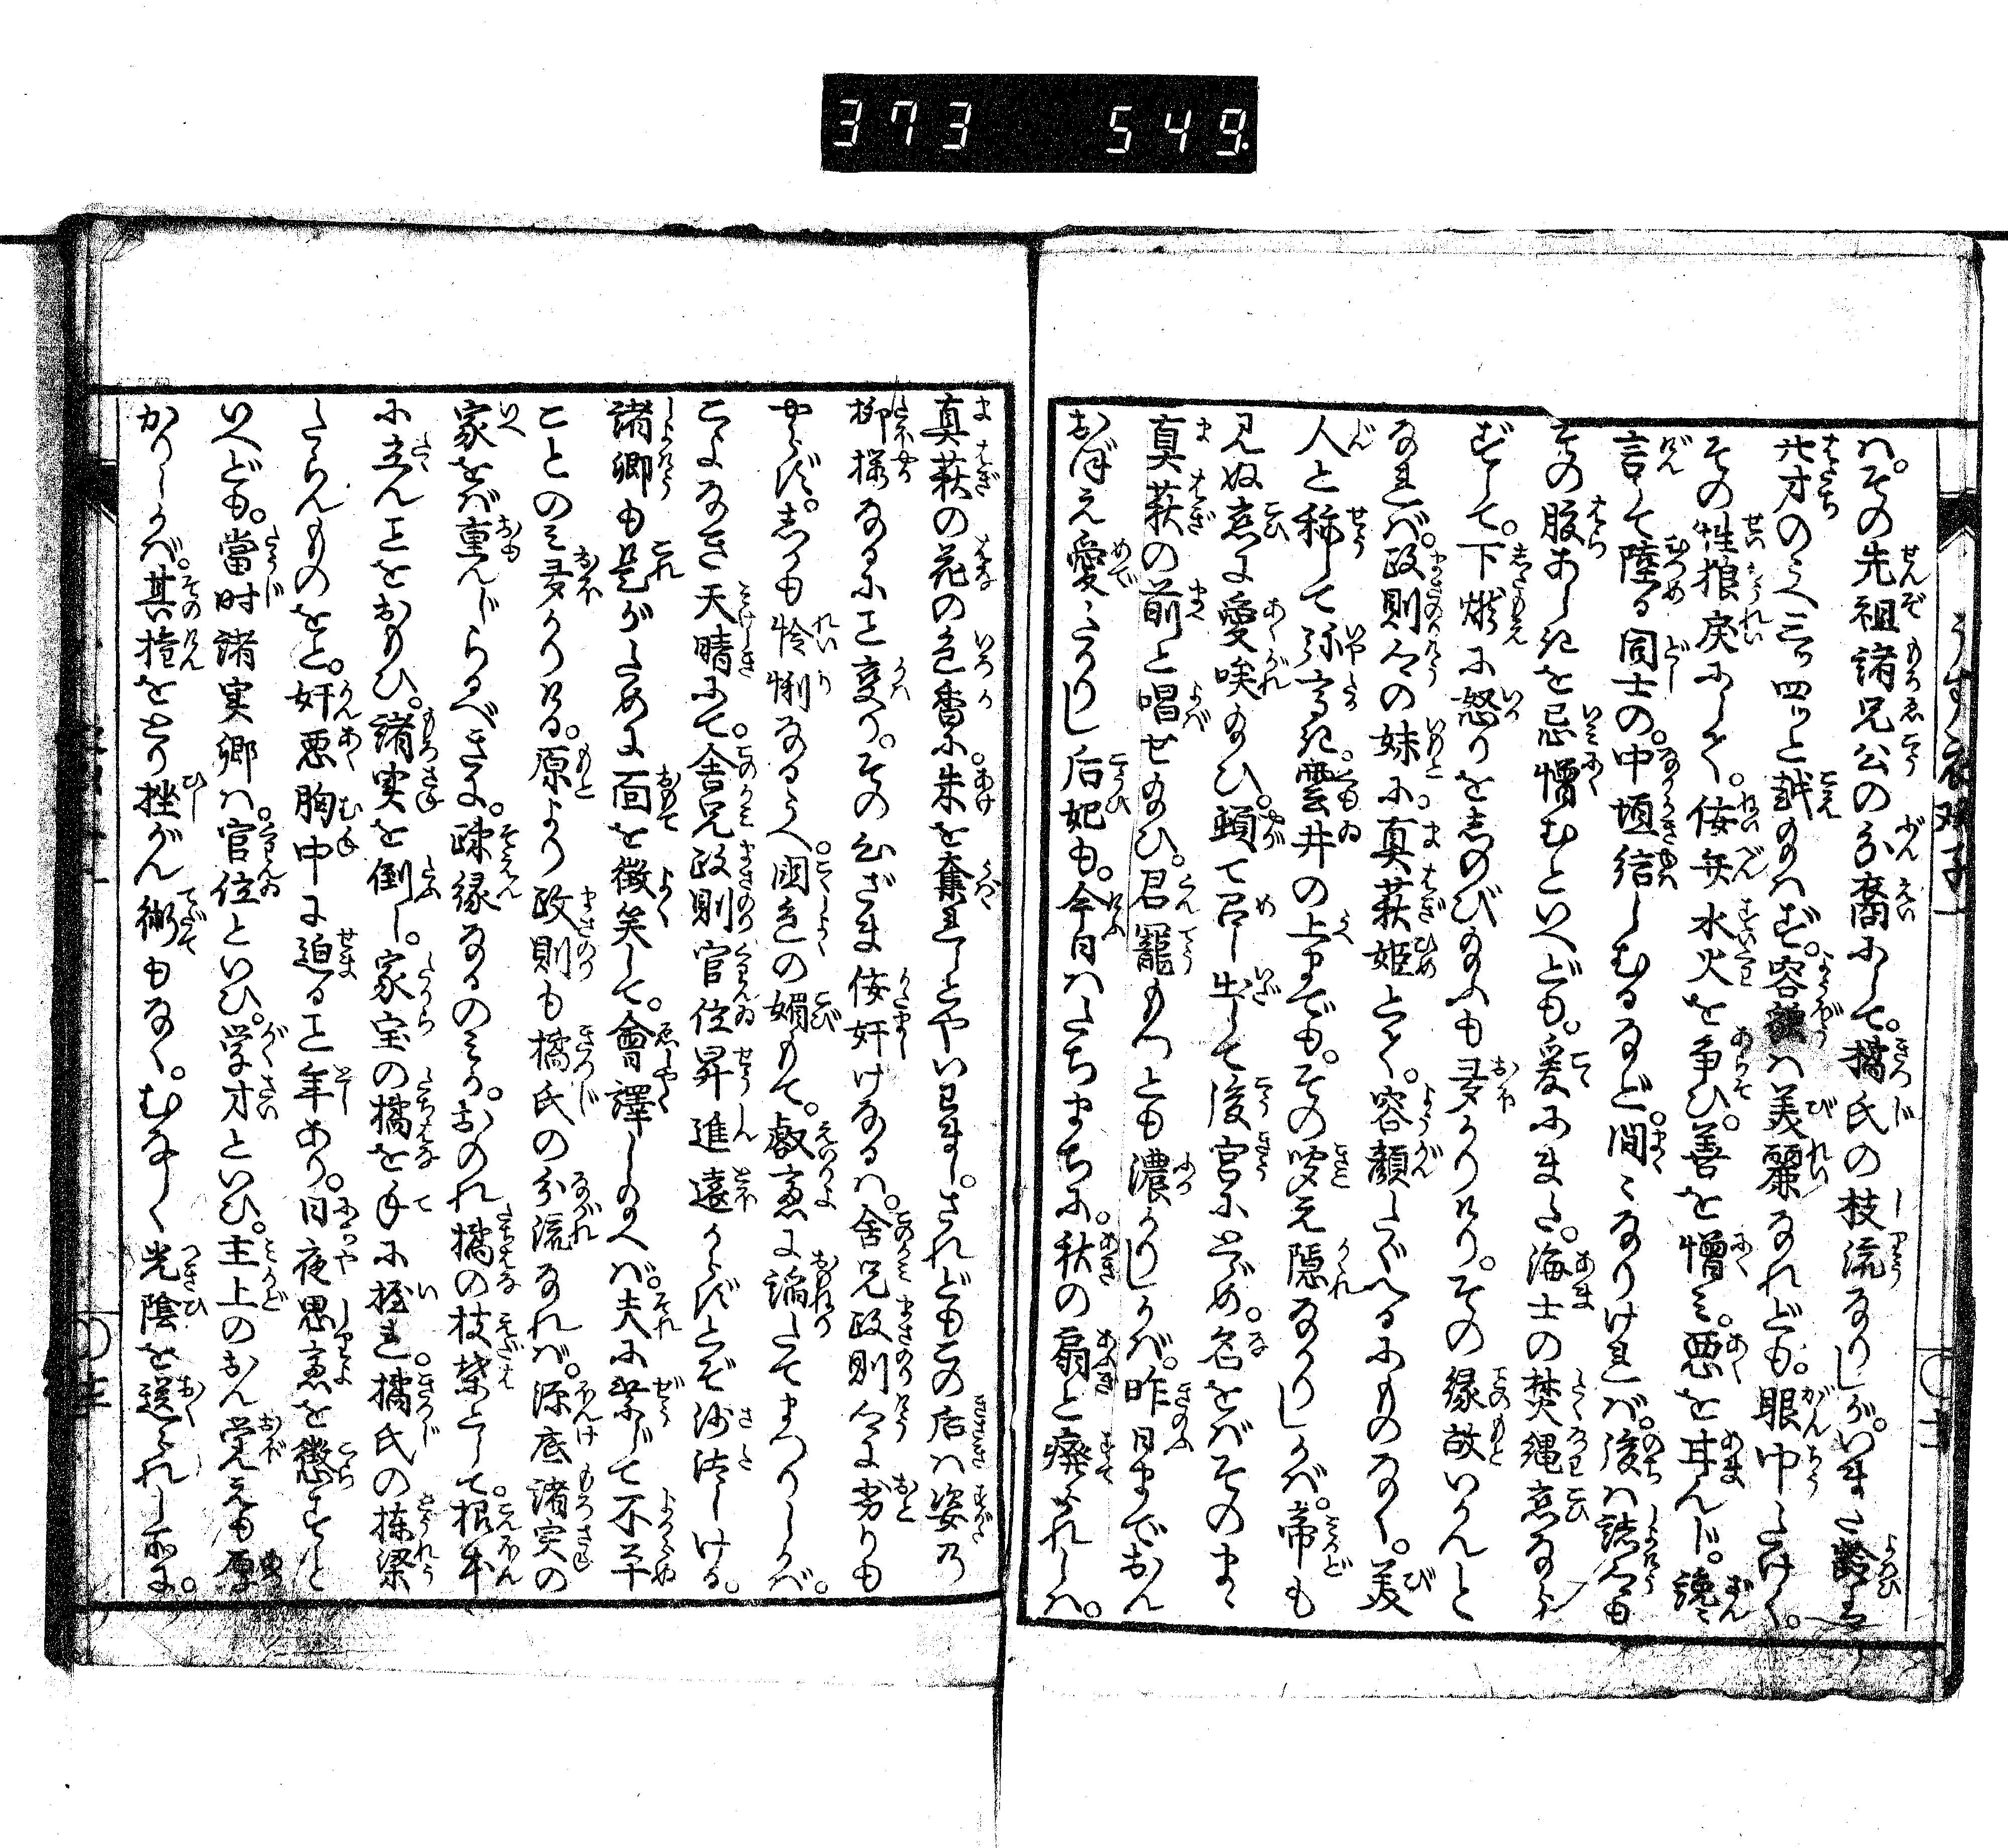 373 549.
は。その先祖諸兄公の分裔にして。橘氏の枝流なりしが。いまだ齢は
廿才のうへ三ッ四ッと越のはず。容顔は美麗なれども。眼中たけく。
その性狼戻にして。佞弁水火を争ひ。善を憎ミ。悪を甘んじ。讒
言して陸る同士の。中垣結しむるなど。間〻なりければ。後は諸人も
その腹あしきを忌憎むといへども。爰にまた。海士の焚縄恋なら
ずして。下燃に怒りを志のび給ふも多かりけり。その縁故いかんと
なれば。政則今の妹に。真萩姫とて。容顔たぐへるにものなく。美
人と称して弥高き。雲井の上までも。その聞え隠なかりしかば。帝も
見ぬ恋に愛喚給ひ。頓て召し出して後宮にとゞめ。名をばそのまゝ
真萩の前と唱せ給ひ。君寵もつとも濃かりしかば。昨日までおん
おぼえ愛たかりし后妃も。今日はたちまちに。秋の扇と廃られしハ。
真萩の花の色香に。朱を奪れしとやいはまし。されどもこの后は姿乃
柳様なるに工変り。その心ざま佞奸けなるハ。舎兄政則今に劣りも
やらず。志かも怜悧なるうへ。国色の媚もて。叡慮に諂たてまつりしかば。
こよなき天晴にて。舎兄政則官位昇進遠からずとぞ沙汰しける。
諸卿も是がために面を徴笑して。會譯しのへば。夫に業じて不羊
ことのミ多かりける。原より政則も橘氏の分流なれば。源底諸実の
家をば重んじらるべきに。疎縁なるのミか。おのれ橘の枝葉として。根本
に立ん工をおもひ。諸実を倒し。家宝の橘を手に握れ。橘氏の棟梁
たらんものをと。奸悪胸中に迫る工年あり。日夜思慮を懲すと
いへども。當時諸実卿ハ。官位といひ。学才といひ。主上のおん覚えも厚
かりしかば。其権をとり挫がん術もなく。むなしく光陰を送られし所に。